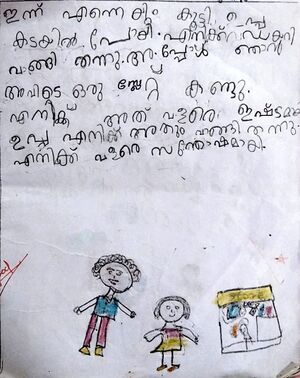 ഇന്ന് എന്നെകൂം കൂട്ടി ഉപ്പ
കടയിൽ പോയി. എനിക്ക്
വാങ്ങി തന്നു. അപ്പോൾ ഞാൻ
അവിടെ ഒരു സ്ലേറ്റ് കണ്ടു.
എനിക്ക് അത് വളരെ ഇഷ്ടമായി
ഉപ്പ എനിക്ക് അതും വാങ്ങി തന്നു
എനിക്ക് വളരെ സന്തോഷമായി.